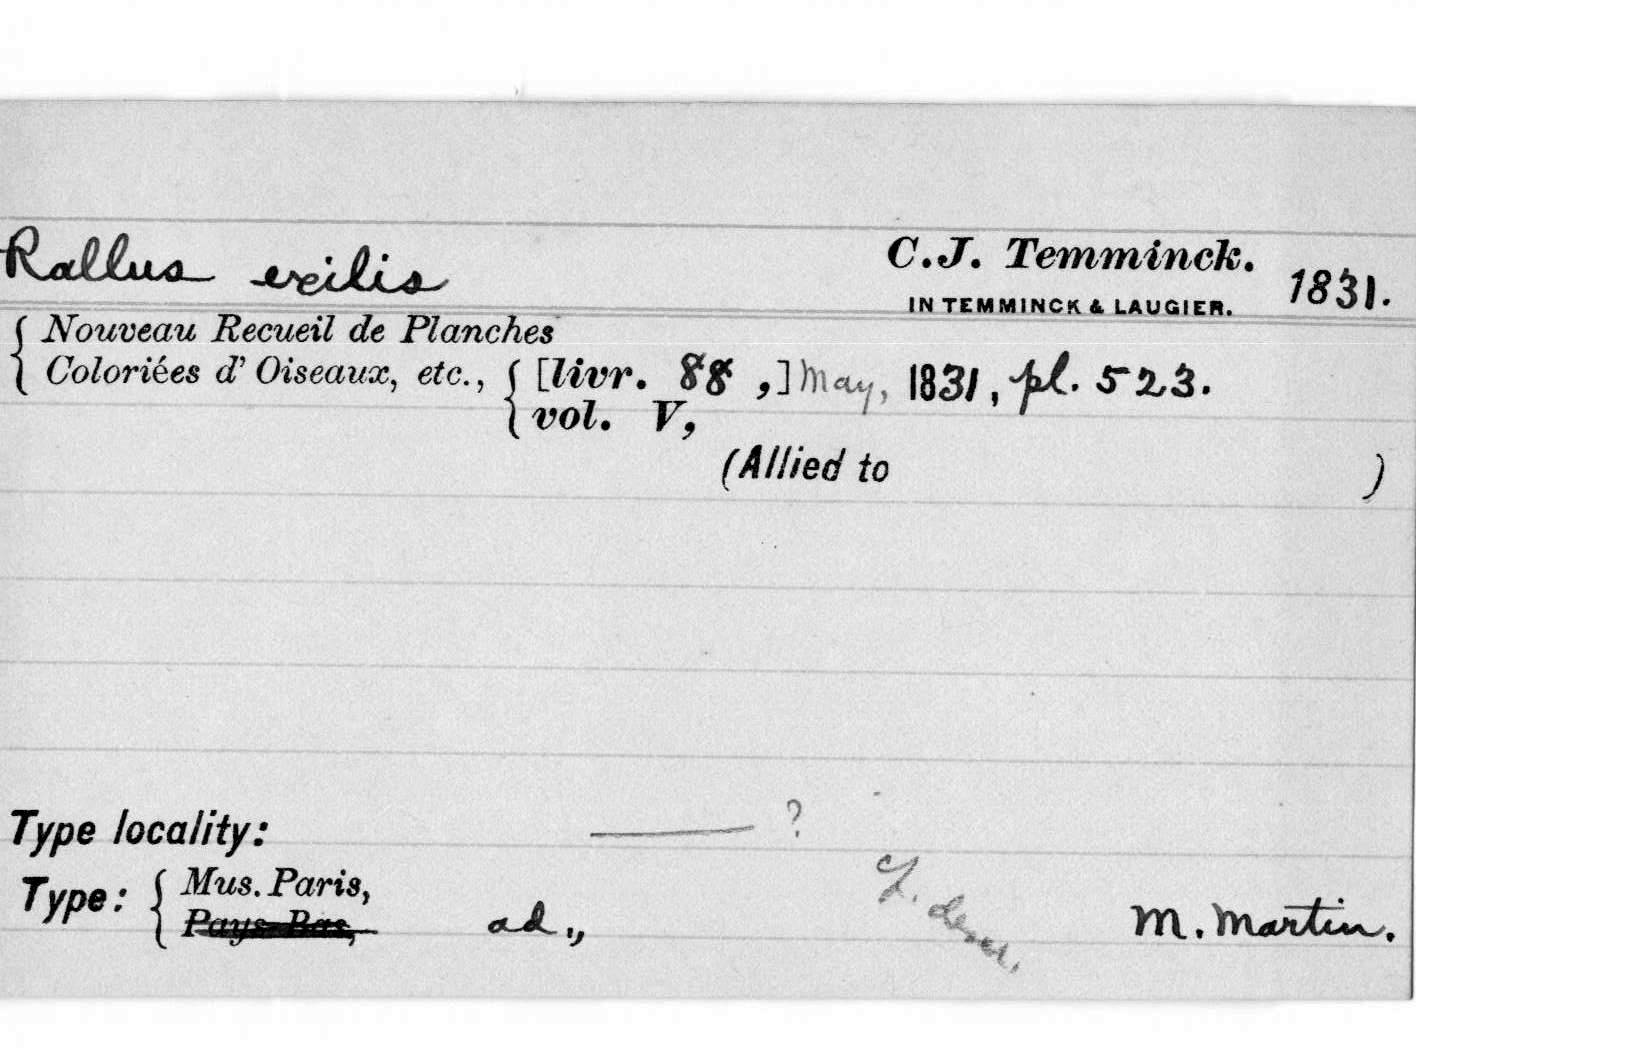 Rallus exilis C.J. Temminck. 1831.
IN TEMMINCK & LAUGIER.
Nouveau Recueil de Planches
Coloriées d' Oiseaux, etc., [livr. 88 ,] May, 1831, pl. 523.
vol. V,
(Allied to )
Type locality: ——— ?
Type: Mus. Paris,
Pays-Bas, ad., M. Martin.